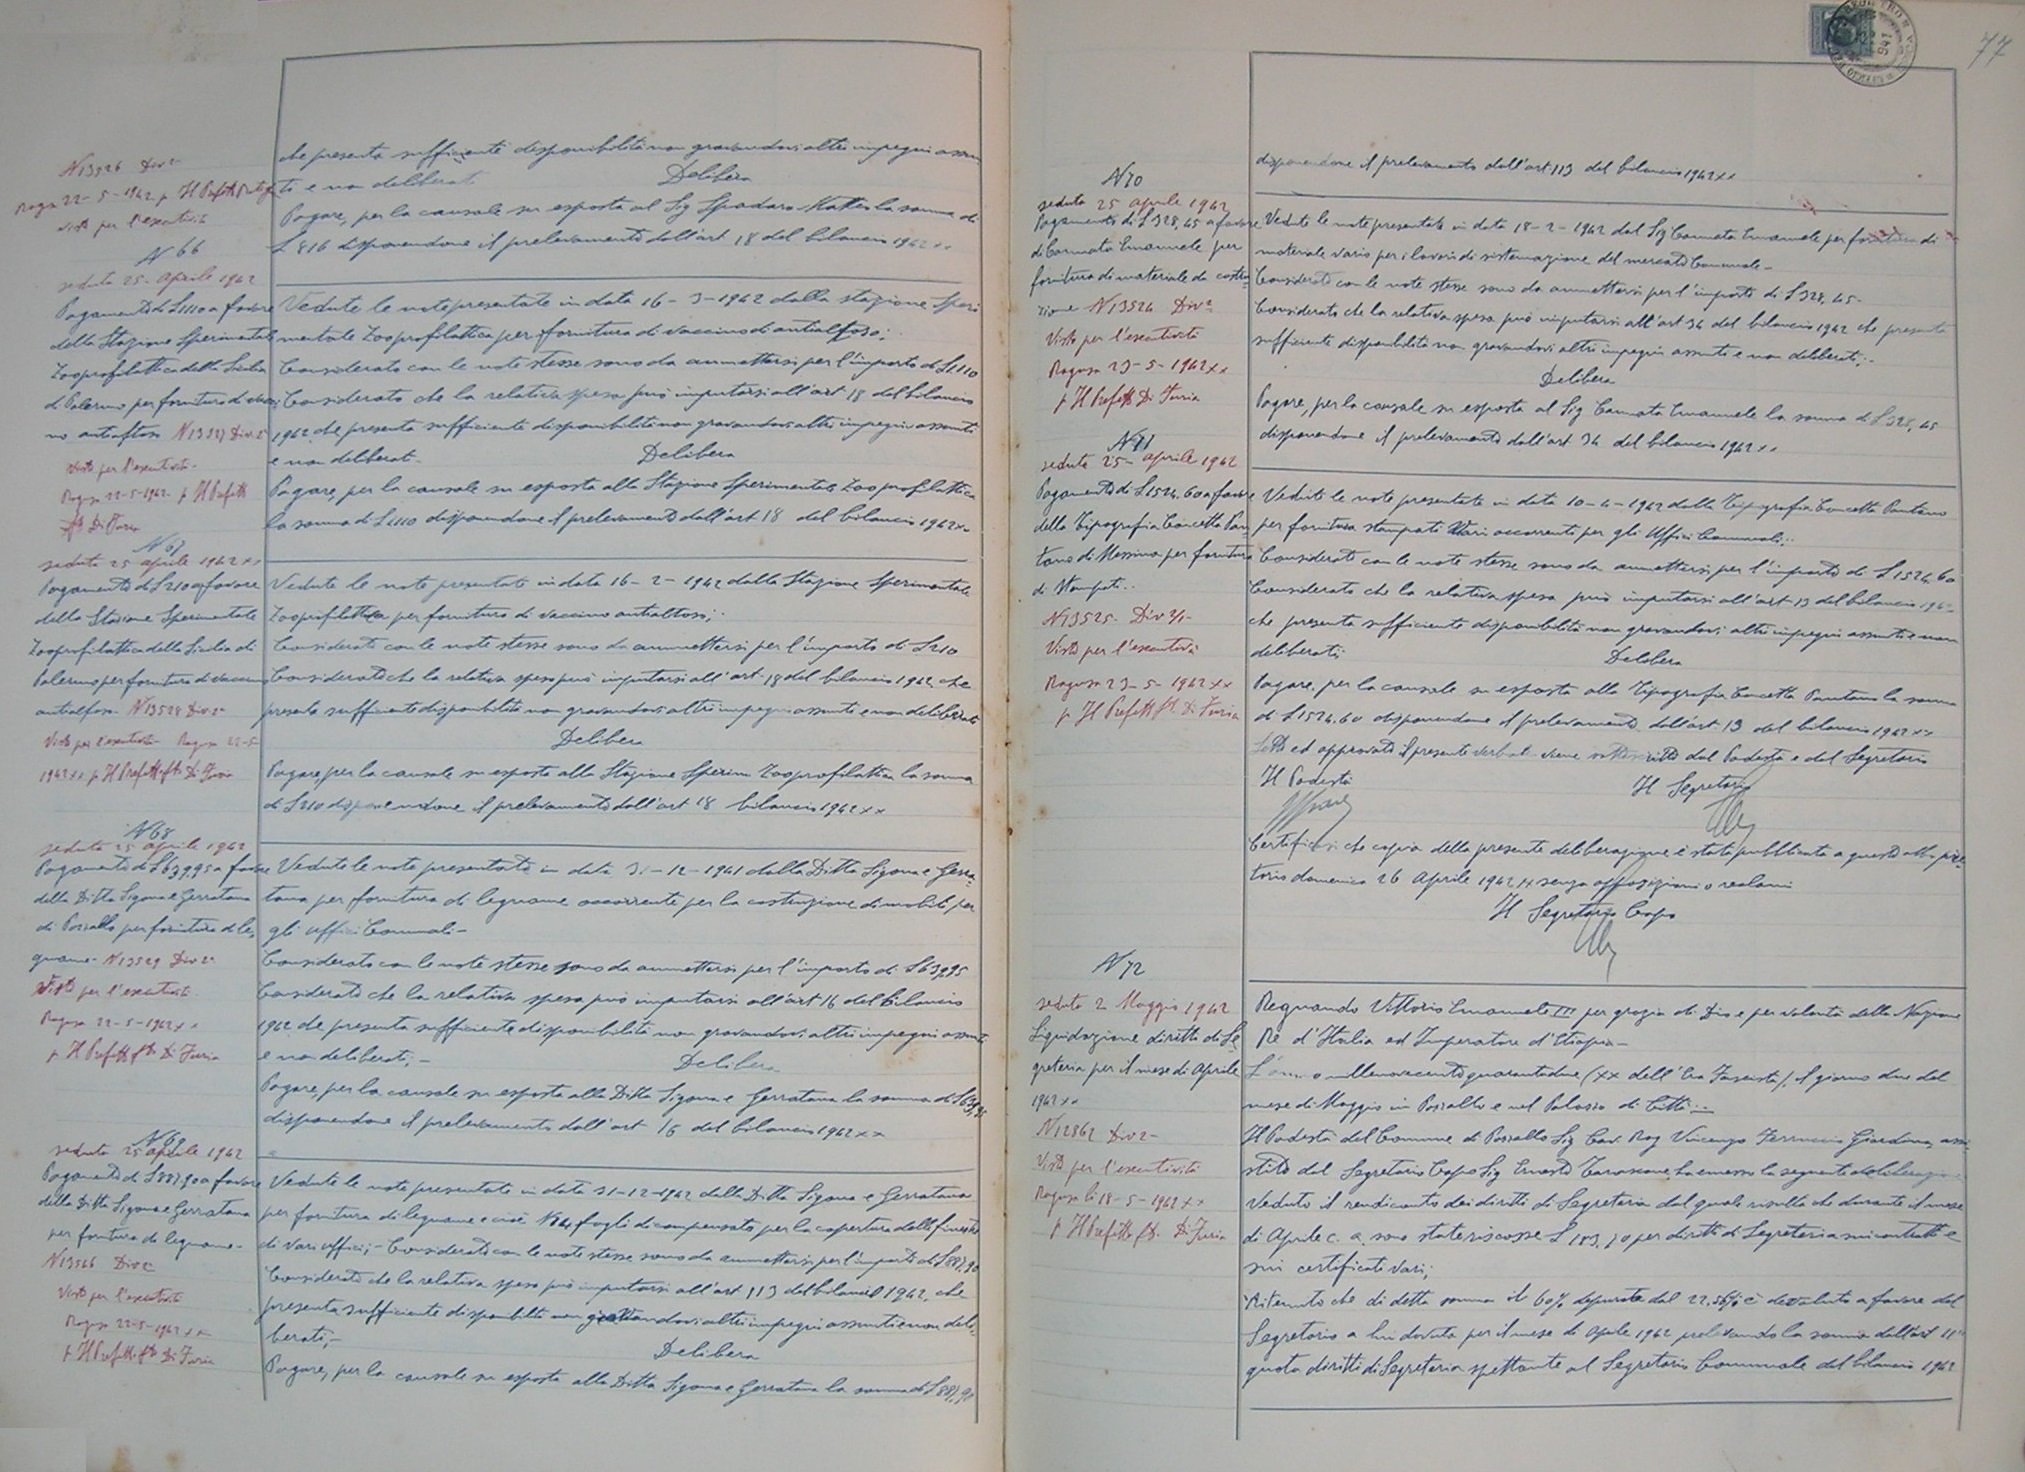 N 13526 Div 2ª
Ragusa 22-5-1942 p Il Prefetto
visto per l'esecutività
che presenta sufficiente disponibilità non gravandovi altri impegni assun
ti e non deliberati
Delibera
Pagare, per la causale su esposta al Sig Spadaro Matteo la somma di
L 816 disponendone il prelevamento dall'art 18 del bilancio 1942 xx
N 66
seduta 25 Aprile 1942
Pagamento di L 1110 a favore
della Stazione Sperimentale
Zooprofilattica della Sicilia
di Palermo per fornitura di vacci
no antiaftoso N 13527 Div 2ª
Visto per l'esecutività
Ragusa 22-5-1942 p Il Prefetto
fto Di Furia
Vedute le note presentate in data 16-3-1942 dalla stazione Speri
mentale Zooprofilattica per fornitura di vaccino di antiaftoso;
Considerato con le note stesse sono da ammettersi per l'importo di L 1110
Considerato che la relativa spesa può imputarsi all'art 18 del bilancio
1942 che presenta sufficiente disponibilità non gravandovi altri impegni assunti
e non deliberati
Delibera
Pagare, per la causale su esposta alla Stazione Sperimentale Zooprofilattica
la somma di L 1110 disponendone il prelevamento dall'art 18 del bilancio 1942 xx
N 67
seduta 25 aprile 1942 xx
Pagamento di L 210 a favore
della Stazione Sperimentale
Zooprofilattica della Sicilia di
Palermo per fornitura di vaccino
antiaftoso N 13528 Div 2ª
Visto per l'esecutività Ragusa 22-5
1942 xx p Il Prefetto fto Di Furia
Vedute le note presentate in data 16-2-1942 dalla Stazione Sperimentale
Zooprofilattica per fornitura di vaccino antiaftoso;
Considerato con le note stesse sono da ammettersi per l'importo di L 210
Considerato che la relativa spesa può imputarsi all'art 18 del bilancio 1942 che
presenta sufficiente disponibilità non gravandovi altri impegni assunti e non deliberati
Delibera
Pagare, per la causale su esposta alla Stazione Sperim Zooprofilattica la somma
di L 210 disponendone il prelevamento dall'art 18 bilancio 1942 xx
N 68
seduta 25 aprile 1942
Pagamento di L 639,95 a favore
della Ditta Sigona e Gerratana
di Pozzallo per fornitura di le
gname - N 13529 Div 2ª
Visto per l'esecutività
Ragusa 22-5-1942 xx
p Il Prefetto fto Di Furia
Vedute le note presentate in data 31-12-1941 dalla Ditta Sigona e Gerra
tana per fornitura di legname occorrente per la costruzione di mobili per
gli uffici Comunali -
Considerato con le note stesse sono da ammettersi per l'importo di L 639,95
Considerato che la relativa spesa può imputarsi all'art 16 del bilancio
1942 che presenta sufficiente disponibilità non gravandovi altri impegni assunti
e non deliberati; -
Delibera
Pagare, per la causale su esposta alla Ditta Sigona e Gerratana la somma di L 639,95
disponendone il prelevamento dall'art 16 del bilancio 1942 xx
N 69
seduta 25 aprile 1942
Pagamento di L 887,90 a favore
della Ditta Sigona e Gerratana
per fornitura di legname -
N 13566 Div 2ª
Visto per l'esecutività
Ragusa 22-5-1942 xx
p Il Prefetto fto Di Furia
Vedute le note presentate in data 31-12-1942 dalla Ditta Sigona e Gerratana
per fornitura di legname e cioè N 24 fogli di compensato per la copertura delle finestre
di vari uffici; - Considerato con le note stesse sono da ammettersi per l'importo di L 887,90
Considerato che la relativa spesa può imputarsi all'art 113 del bilancio 1942, che
presenta sufficiente disponibilità non gravandovi altri impegni assunti e non deli
berati; -
Delibera
Pagare, per la causale su esposta alla Ditta Sigona e Gerratana la somma di L 887,90
77
disponendone il prelevamento dall'art 113 del bilancio 1942 xx
N 70
seduta 25 aprile 1942
Pagamento di L 328,45 a favore
di Cannata Emanuele per
fornitura di materiale da costru
zione N 13524 Div 2ª
Visto per l'esecutività
Ragusa 23-5-1942 xx
p Il Prefetto Di Furia
Vedute le note presentate in data 18-2-1942 dal Sig Cannata Emanuele per fornitura di
materiale vario per i lavori di sistemazione del mercato Comunale -
Considerato con le note stesse sono da ammettersi per l'importo di L 328,45 -
Considerato che la relativa spesa può imputarsi all'art 34 del bilancio 1942 che presenta
sufficiente disponibilità non gravandovi altri impegni assunti e non deliberati; -
Delibera
Pagare, per la causale su esposta al Sig Cannata Emanuele la somma di L 328,45
disponendone il prelevamento dall'art 34 del bilancio 1942 xx
N 71
seduta 25 aprile 1942
Pagamento di L 1524,60 a favore
della Tipografia Concetto Pan
tano di Messina per fornitura
di stampati..
N 13525 Div 2/1
Visto per l'esecutività
Ragusa 23-5-1942 xx
p Il Prefetto fto Di Furia
Vedute le note presentate in data 10-4-1942 dalla Tipografia Concetto Pantano
per fornitura stampati Vari occorrenti per gli Uffici Comunali;
Considerato con le note stesse sono da ammettersi per l'importo di L 1524,60
Considerato che la relativa spesa può imputarsi all'art 13 del bilancio 1942
che presenta sufficiente disponibilità non gravandovi altri impegni assunti e non
deliberati;
Delibera
Pagare, per la causale su esposta alla Tipografia Concetto Pantano la somma
di L 1524,60 disponendone il prelevamento dall'art 13 del bilancio 1942 xx
Letto ed approvato il presente verbale viene sottoscritto dal Podestà e dal Segretario
Il Podestà
Il Segretario
Certificasi che copia della presente deliberazione è stata pubblicata a questo albo pre
torio domenica 26 Aprile 1942 xx senza opposizioni o reclami
Il Segretario Capo
N 72
seduta 2 Maggio 1942
Liquidazione diritti di Se
greteria per il mese di Aprile
1942 xx
N 12862 Div 2ª
Visto per l'esecutività
Ragusa li 18-5-1942 xx
p Il Prefetto fto Di Furia
Regnando Vittorio Emanuele III per grazia di Dio e per volontà della Nazione
Re d'Italia ed Imperatore d'Etiopia -
L'anno millenovecentoquarantadue (XX dell'Era Fascista), il giorno due del
mese di Maggio in Pozzallo e nel Palazzo di Città
Il Podestà del Comune di Pozzallo Sig Cav. Rag Vincenzo Ferruccio Giordana, assi
stito dal Segretario Capo Sig Ernesto Tarascone ha emesso la seguente deliberazione
Veduto il rendiconto dei diritti di Segreteria dal quale risulta che durante il mese
di Aprile c. a. sono state riscosse L 183,70 per diritti di Segreteria sui contratti e
sui certificati vari;
Ritenuto che di detta somma il 60% depurato dal 22,56% è devoluto a favore del
Segretario a lui dovuta per il mese di Aprile 1942 prelevando la somma dall'art 11
quota diritti di Segreteria spettante al Segretario Comunale del bilancio 1942